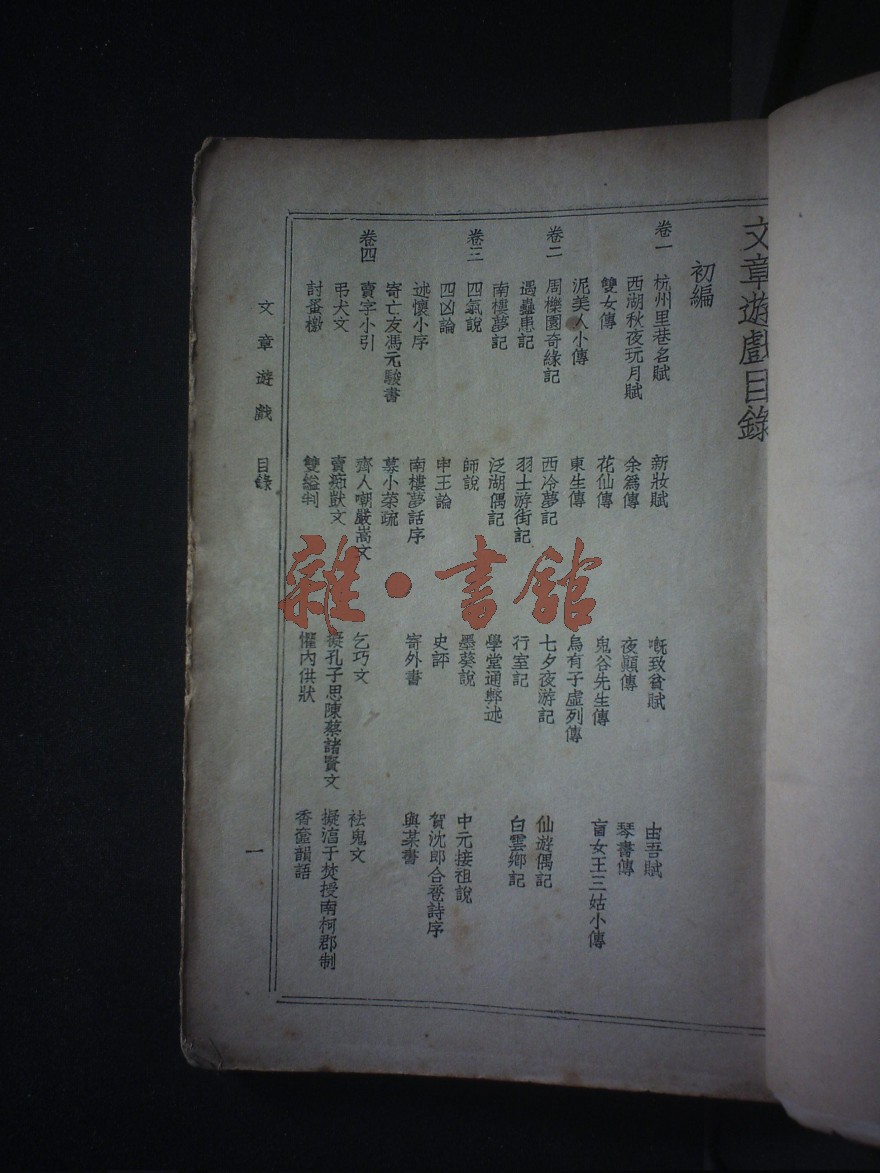 文章遊戲目錄
初編
卷一 杭州里巷名賦 新妝賦 嘅致貧賦 由吾賦
西湖秋夜玩月賦 余爲傳 夜顚傳 琴書傳
雙女傳 花仙傳 鬼谷先生傳 盲女王三姑小傳
泥美人小傳 東生傳 烏有子虛列傳
卷二 周櫟園奇緣記 西泠夢記 七夕夜游記 仙遊偶記
遇蟲患記 羽士游街記 行室記 白雲鄉記
南樓夢記 泛湖偶記 學堂通弊述
卷三 四氣說 師說 墨葵說 中元接祖說
四凶論 申王論 史評 賀沈郎合巹詩序
述懷小序 南樓夢話序 寄外書 與某書
寄亡友馮元駿書 募小菜疏
卷四 賣字小引 齊人嘲嚴嵩文 乞巧文 祛鬼文
弔犬文 賣痴獃文 擬孔子思陳蔡諸賢文 擬淳于棼授南柯郡制
討蚤檄 雙縊判 懼內供狀 香奩韻語
文章遊戲 目錄 一
雜·書館